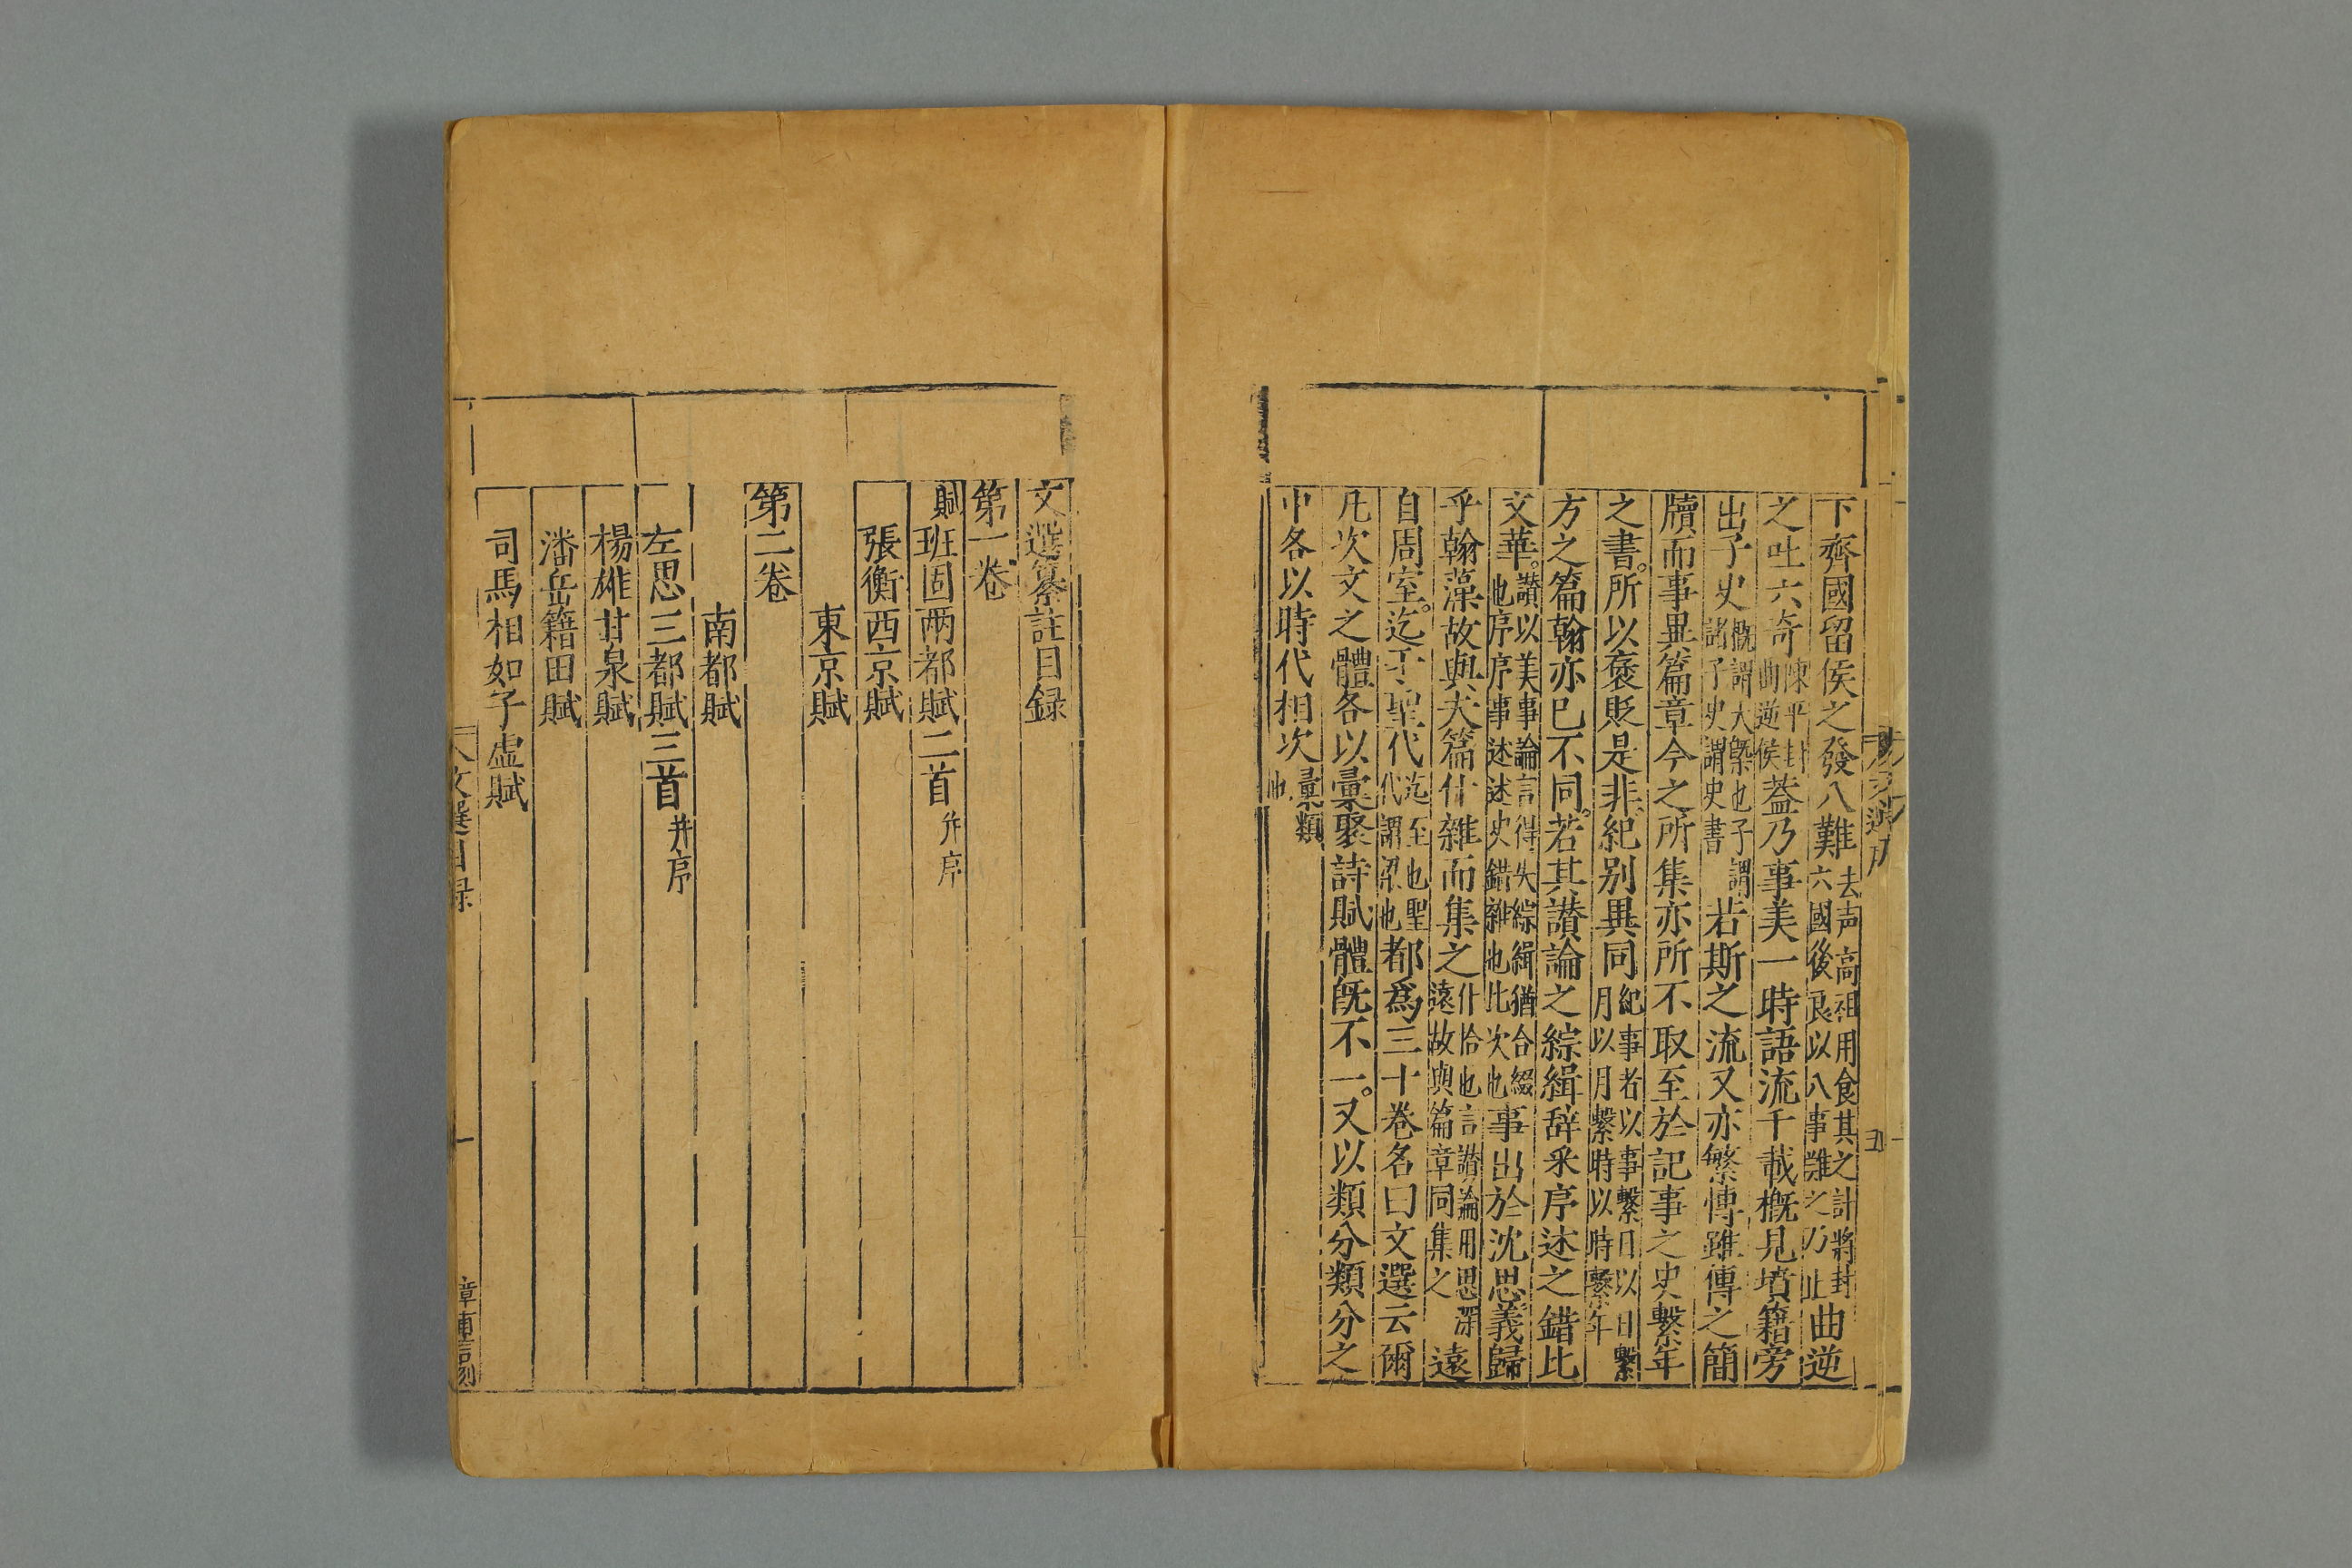 下齊國留侯之發八難去声高祖用食其之計將封六國後良以八事難之乃止曲逆
之吐六奇陳平封曲逆侯葢乃事美一時語流千載槪見墳籍旁
出子史槪謂大槩也子謂諸子史謂史書若斯之流又亦繁愽雖傳之簡
牘而事異篇章今之所集亦所不取至於記事之史繫年
之書。所以褒貶是非紀别異同紀事者以事繫日以日繫月以月繫時以時繫年
方之篇翰亦已不同。若其讃論之綜緝辭釆序述之錯比
文華。讃以美事論言得失綜緝猶合綴也序序事述述史錯雜也比次也事出於沈思義歸
乎翰藻故與夫篇什雜而集之什拾也言讃論用思深遠故與篇章同集之遠
自周室。迄于聖代迄至也聖代謂梁也都爲三十卷名曰文選云爾
凡次文之體各以彙聚詩賦體旣不一。又以類分類分之
中各以時代相次彙類也
文選序
五
文選纂註目録
第一卷
賦班固兩都賦二首并序
張衡西京賦
東京賦
第二卷
南都賦
左思三都賦三首并序
楊雄甘泉賦
潘岳籍田賦
司馬相如子虛賦
文選目録
一
章甫言刻